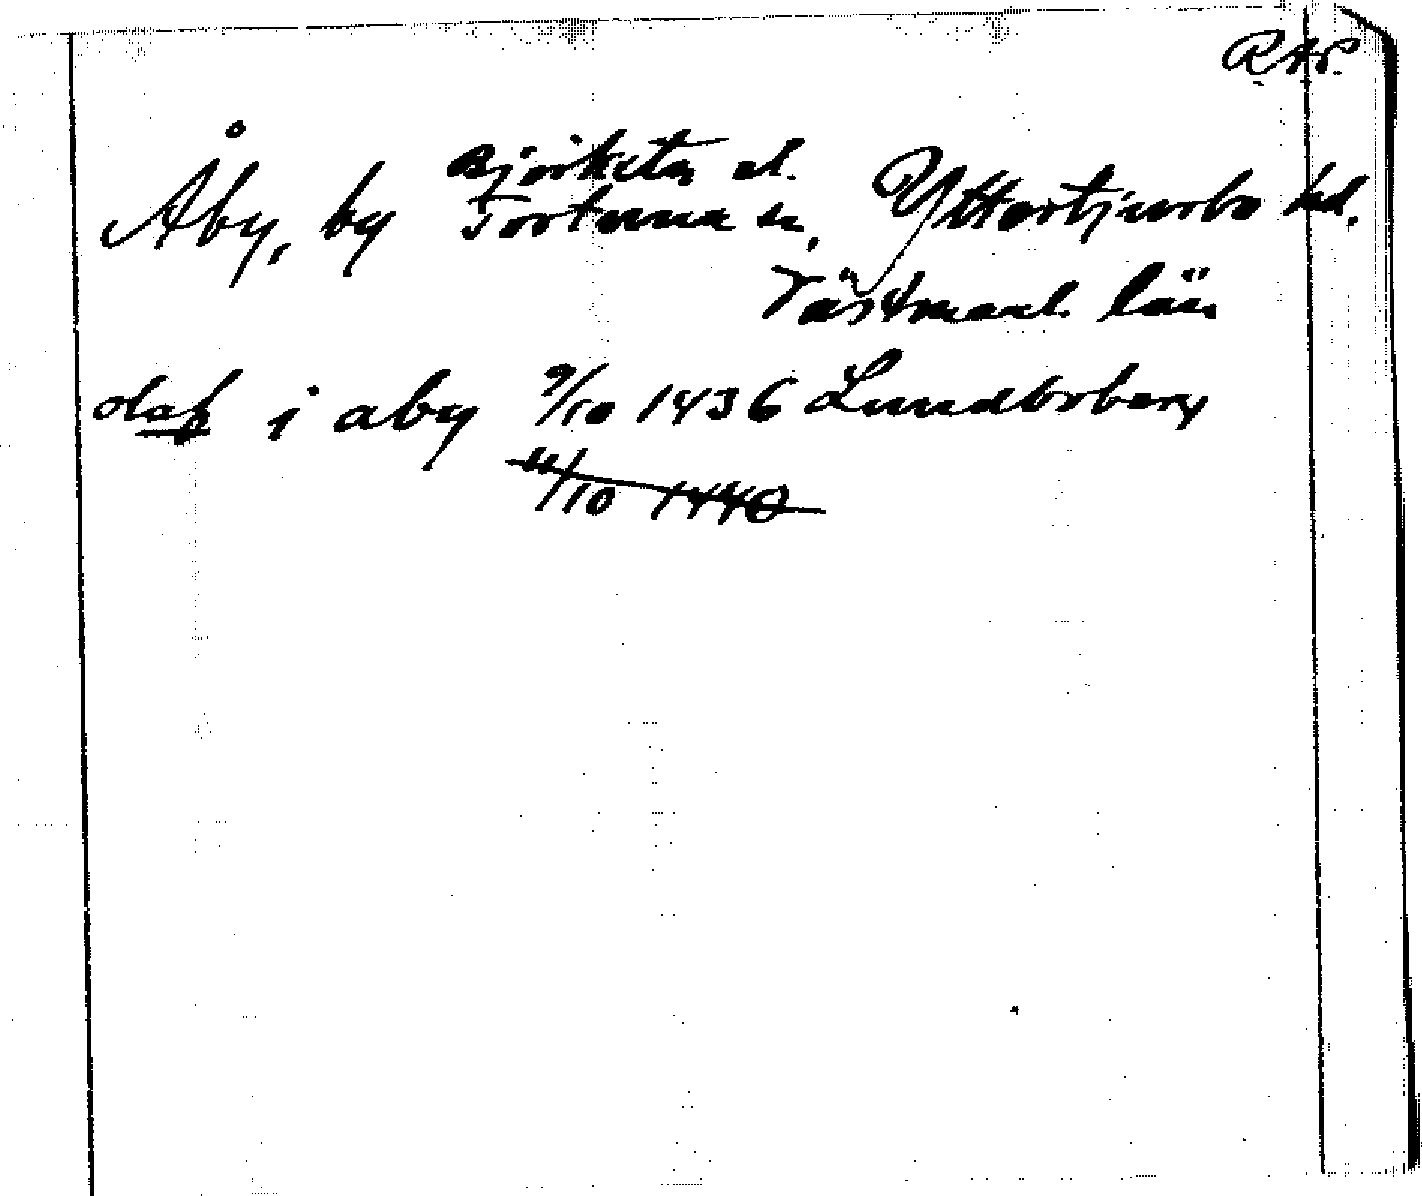 RAP.
Björksta el.
Åby, by Tortuna sn, Yttertjurbo hd.
Västmanl. län
olaf i aby 9/10 1436 Lundboberg
11/10 1440